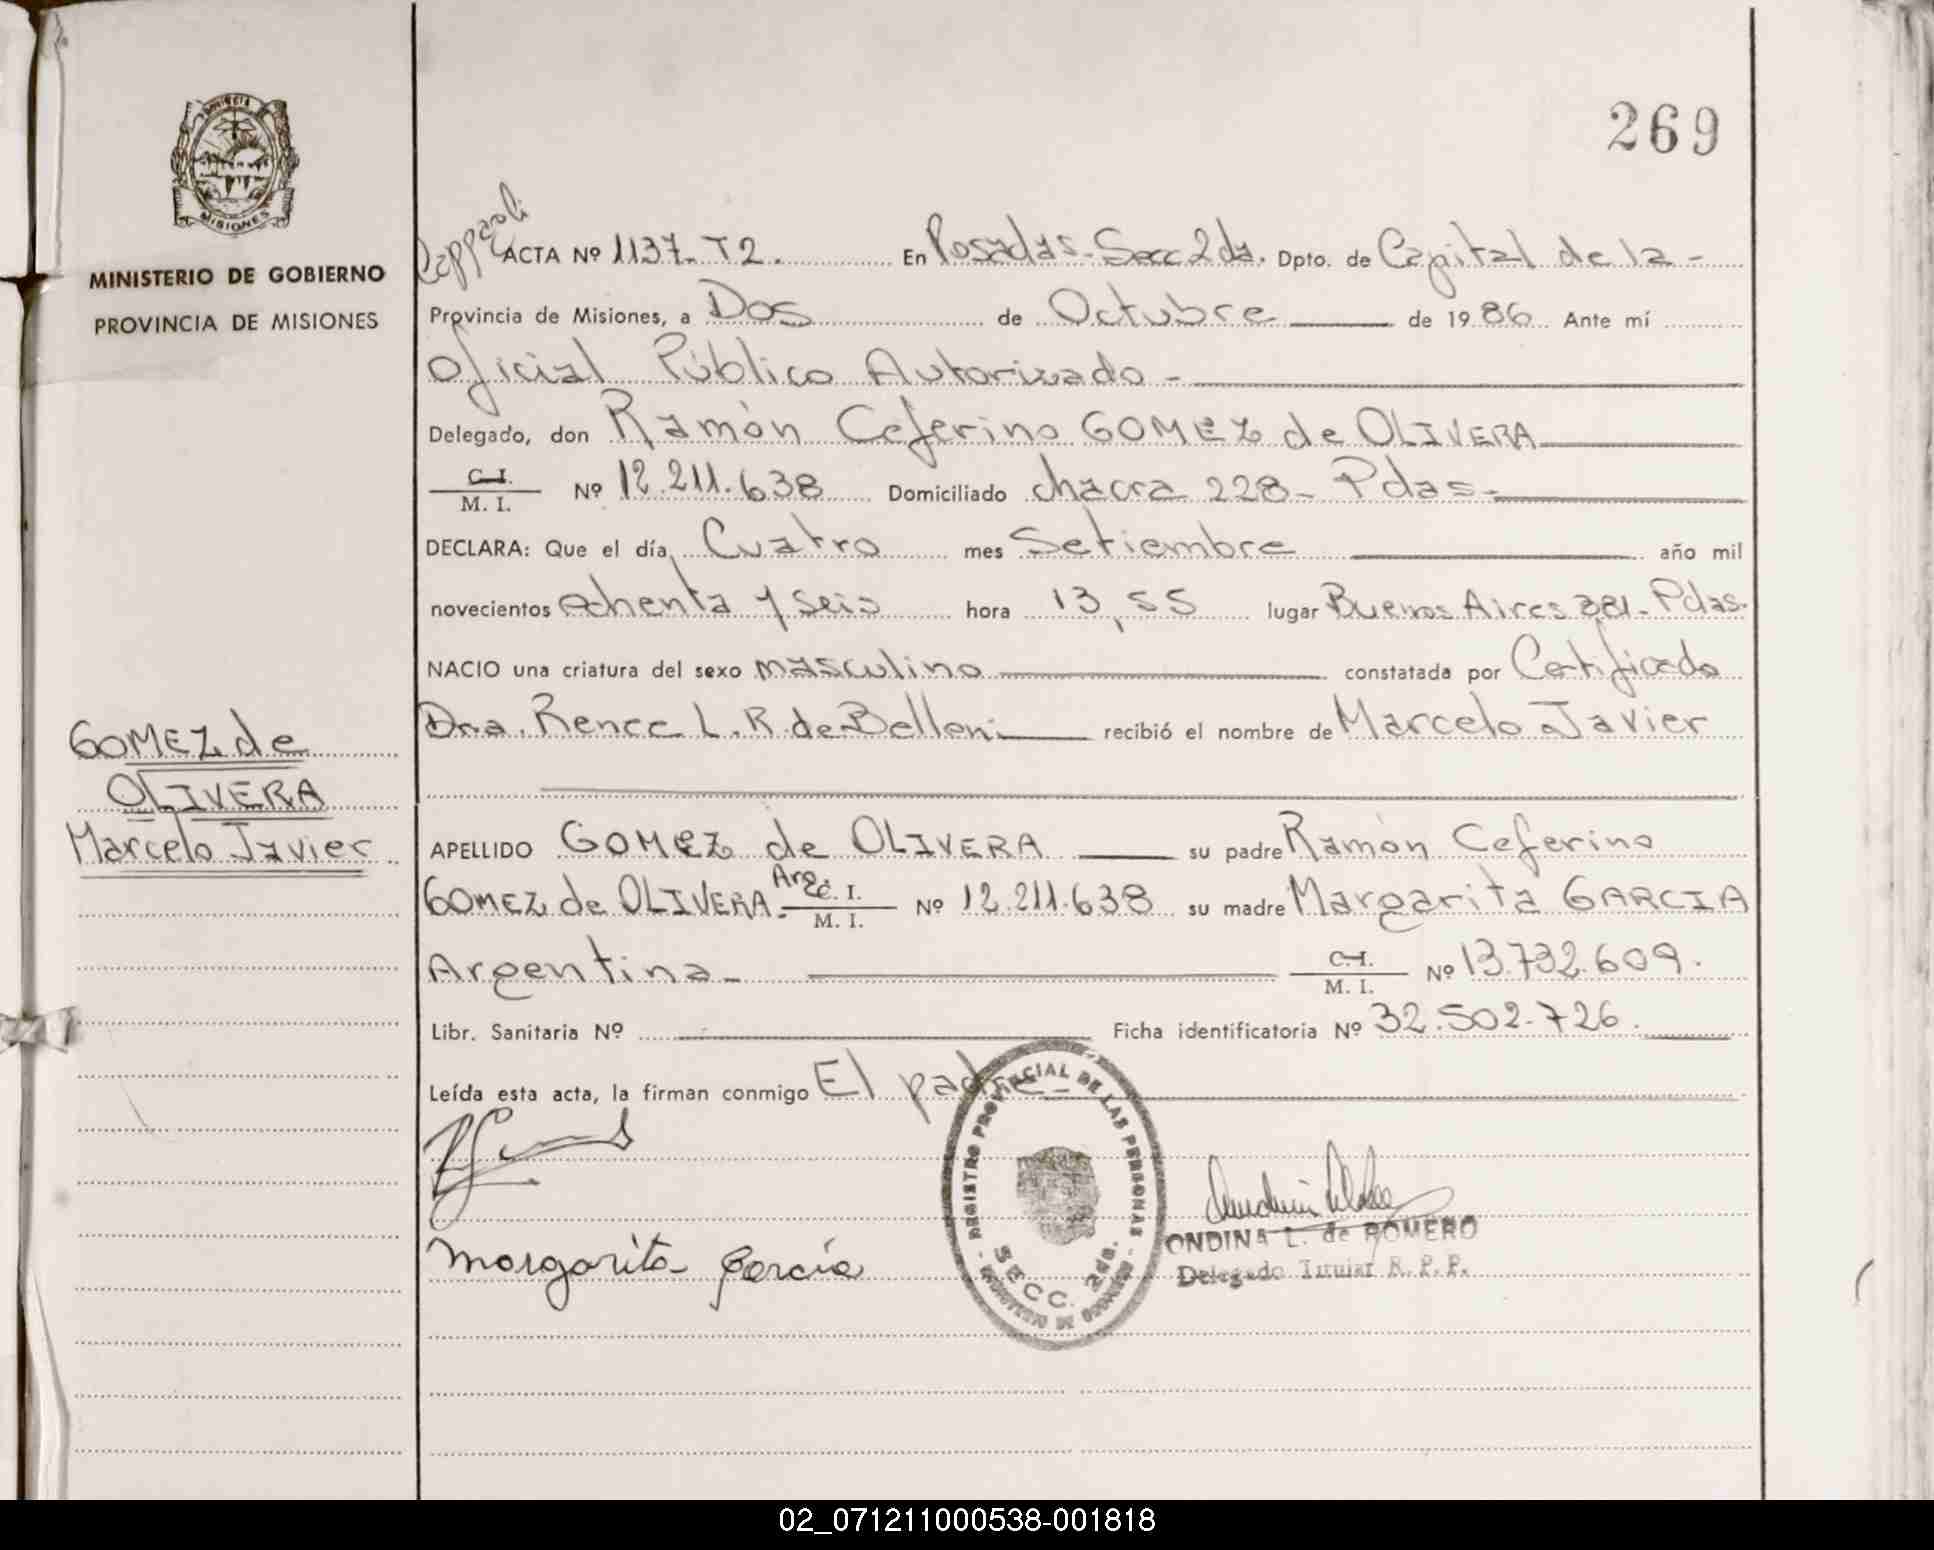 269
MISIONES
MINISTERIO DE GOBIERNO
PROVINCIA DE MISIONES
GOMEZ de
OLIVERA
Marcelo Javier
ACTA Nº 1137. T2. En Posadas. Secc 2da. Dpto. de Capital de la -
Provincia de Misiones, a Dos de Octubre de 1986. Ante mí
Oficial Público Autorizado -
Delegado, don Ramón Ceferino GOMEZ de OLIVERA
C.I. / M. I. Nº 12.211.638 Domiciliado chacra 228 - Pdas -
DECLARA: Que el día Cuatro mes Setiembre año mil
novecientos Ochenta y seis hora 13,55 lugar Buenos Aires 381 - Pdas.
NACIO una criatura del sexo masculino constatada por Certificado
Dra. Renee L. R. de Belloni recibió el nombre de Marcelo Javier
APELLIDO GOMEZ de OLIVERA su padre Ramón Ceferino
GOMEZ de OLIVERA. Arg. C. I. / M. I. Nº 12.211.638 su madre Margarita GARCIA
Argentina - C.I. / M. I. Nº 13.732.609.
Libr. Sanitaria Nº Ficha identificatoria Nº 32.502.726.
Leída esta acta, la firman conmigo El padre -
REGISTRO PROVINCIAL DE LAS PERSONAS
SECC. 2da.
MINISTERIO DE GOBIERNO
Margarita García
ONDINA L. de ROMERO
Delegado Titular R. P. P.
02_071211000538-001818